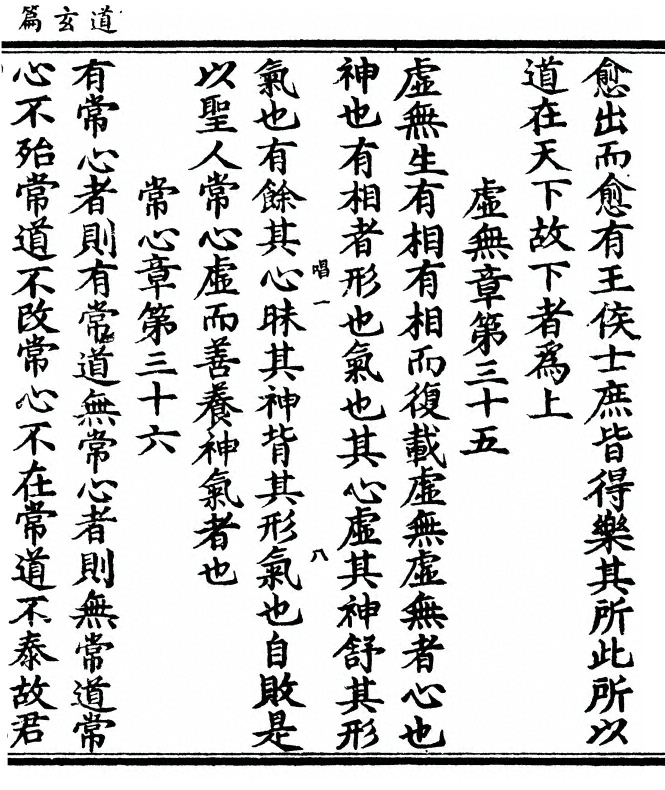 道玄篇
愈出而愈有王侯士庶皆得樂其所此所以
道在天下故下者為上
虛無章第三十五
虛無生有相有相而復載虛無虛無者心也
神也有相者形也氣也其心虛其神舒其形
唱一
八
氣也有餘其心昧其神背其形氣也自敗是
以聖人常心虛而善養神氣者也
常心章第三十六
有常心者則有常道無常心者則無常道常
心不殆常道不改常心不在常道不泰故君